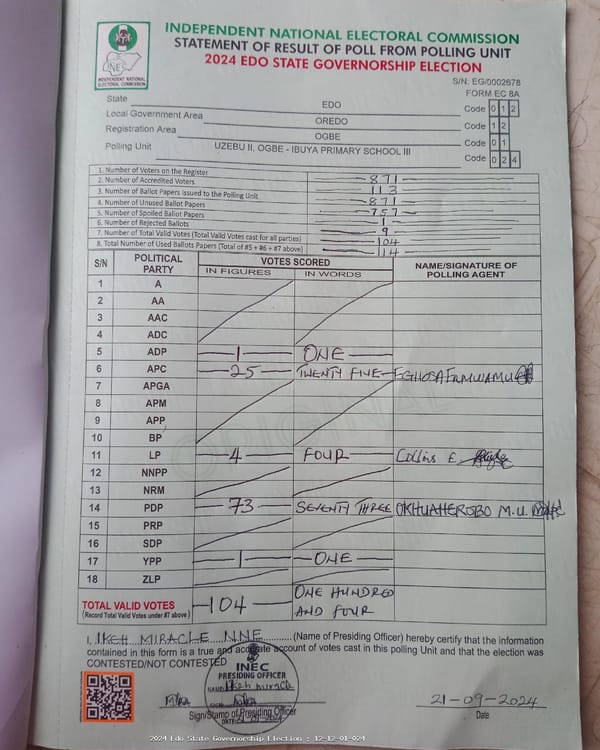 INDEPENDENT NATIONAL ELECTORAL COMMISSION
STATEMENT OF RESULT OF POLL FROM POLLING UNIT
2024 EDO STATE GOVERNORSHIP ELECTION
INEC
INDEPENDENT NATIONAL
ELECTORAL COMMISSION
S/N: EG/0002678
FORM EC 8A
State EDO Code 0 1 2
Local Government Area OREDO Code 1 2
Registration Area OGBE Code 0 1
Polling Unit UZEBU II, OGBE - IBUYA PRIMARY SCHOOL III Code 0 2 4
1. Number of Voters on the Register 871
2. Number of Accredited Voters 113
3. Number of Ballot Papers Issued to the Polling Unit 871
4. Number of Unused Ballot Papers 757
5. Number of Spoiled Ballot Papers 1
6. Number of Rejected Ballots 9
7. Number of Total Valid Votes (Total Valid Votes cast for all parties) 104
8. Total Number of Used Ballots Papers (Total of #5 + #6 + #7 above) 114
S/N POLITICAL PARTY VOTES SCORED NAME/SIGNATURE OF POLLING AGENT
IN FIGURES IN WORDS
1 A
2 AA
3 AAC
4 ADC
5 ADP 1 ONE
6 APC 25 TWENTY FIVE EGHOSA
7 APGA
8 APM
9 APP
10 BP
11 LP 4 FOUR Collins E.
12 NNPP
13 NRM
14 PDP 73 SEVENTY THREE OKHUAHEROBO M.U.
15 PRP
16 SDP
17 YPP 1 ONE
18 ZLP
TOTAL VALID VOTES 104 ONE HUNDRED AND FOUR
(Record Total Valid Votes under #7 above)
I, IKEH MIRACLE NNE (Name of Presiding Officer) hereby certify that the information
contained in this form is a true and accurate account of votes cast in this polling Unit and that the election was
CONTESTED/NOT CONTESTED
INEC
PRESIDING OFFICER
NAME: Ikeh miracle
DATE:
21-09-2024
Sign/Stamp of Presiding Officer Date
2024 Edo State Governorship Election : 12-12-01-024